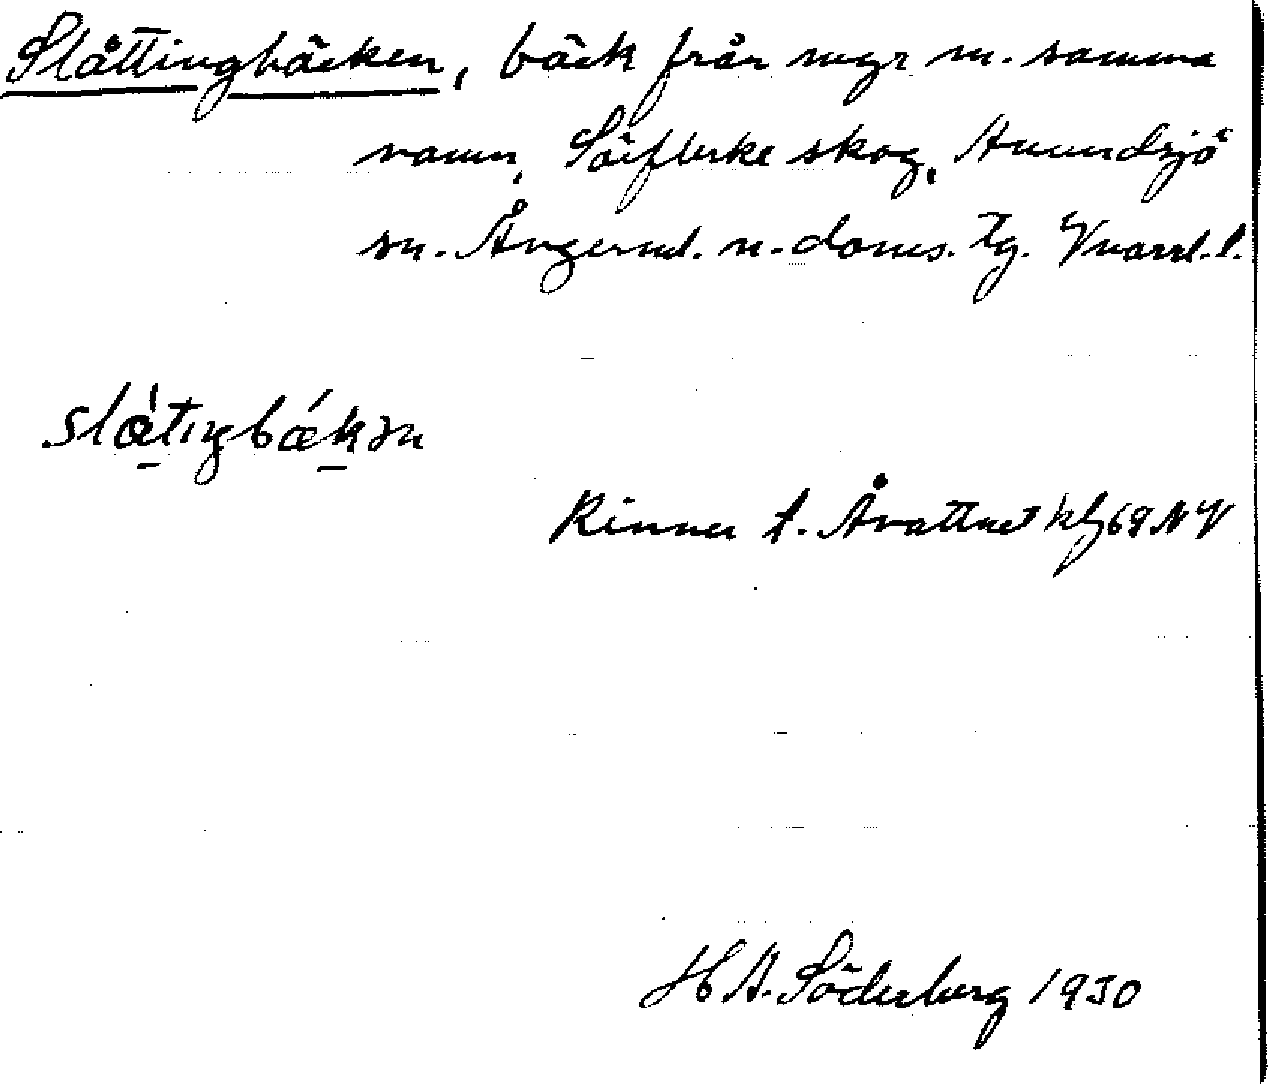 Slåttingbäcken, bäck från myr m. samma
namn, skog, Anundsjö
sn. Ångerml. n. doms. tg. Vnorrl. l.
Rinner t. Åvattnet kbl 69 NV
H A. Söderberg 1930